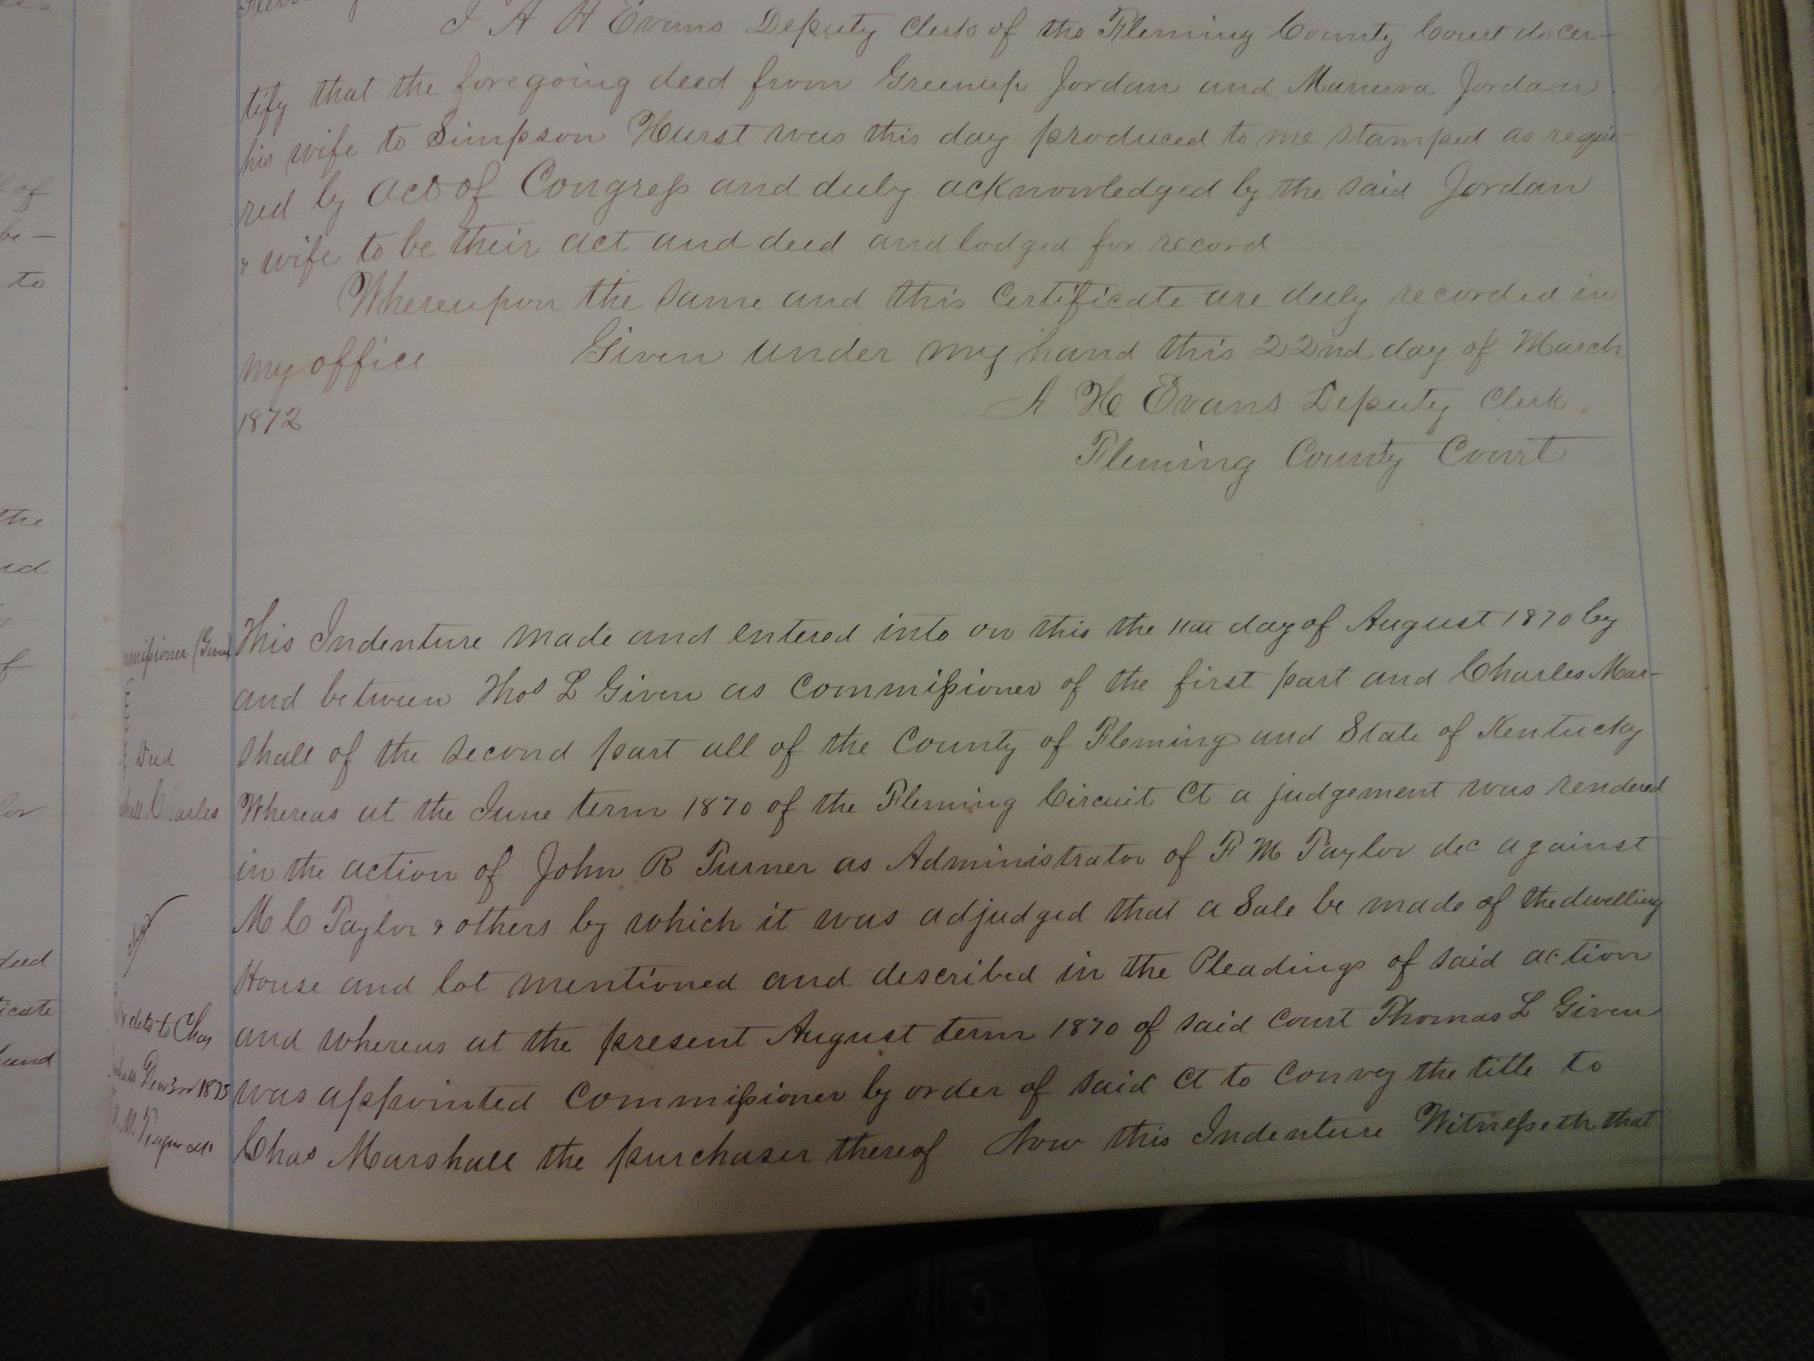 I A H Evans Deputy Clerk of the Fleming County Court do cer-
tify that the foregoing deed from Greenup Jordan and Manerva Jordan
his wife to Simpson Hurst was this day produced to me stamped as requi-
red by act of Congress and duly acknowledged by the said Jordan
& wife to be their act and deed and lodged for record
Whereupon the same and this Certificate are duly recorded in
my office Given under my hand this 22nd day of March
1872
A H Evans Deputy Clerk
Fleming County Court
This Indenture made and entered into on this the 11th day of August 1870 by
and between Thos L Given as Commissioner of the first part and Charles Mar-
shall of the second part all of the County of Fleming and State of Kentucky
Whereas at the June term 1870 of the Fleming Circuit Ct a judgement was rendered
in the action of John R Turner as Administrator of F M Taylor dec against
M C Taylor & others by which it was adjudged that a Sale be made of the dwelling
House and lot mentioned and described in the Pleadings of said action
and whereas at the present August term 1870 of said Court Thomas L Given
was appointed Commissioner by order of said Ct to Convey the title to
Chas Marshall the purchaser thereof Now this Indenture Witnesseth that
Deed
Charles
to Chas
1875
of
be-
to
the
f
deed
icate
land